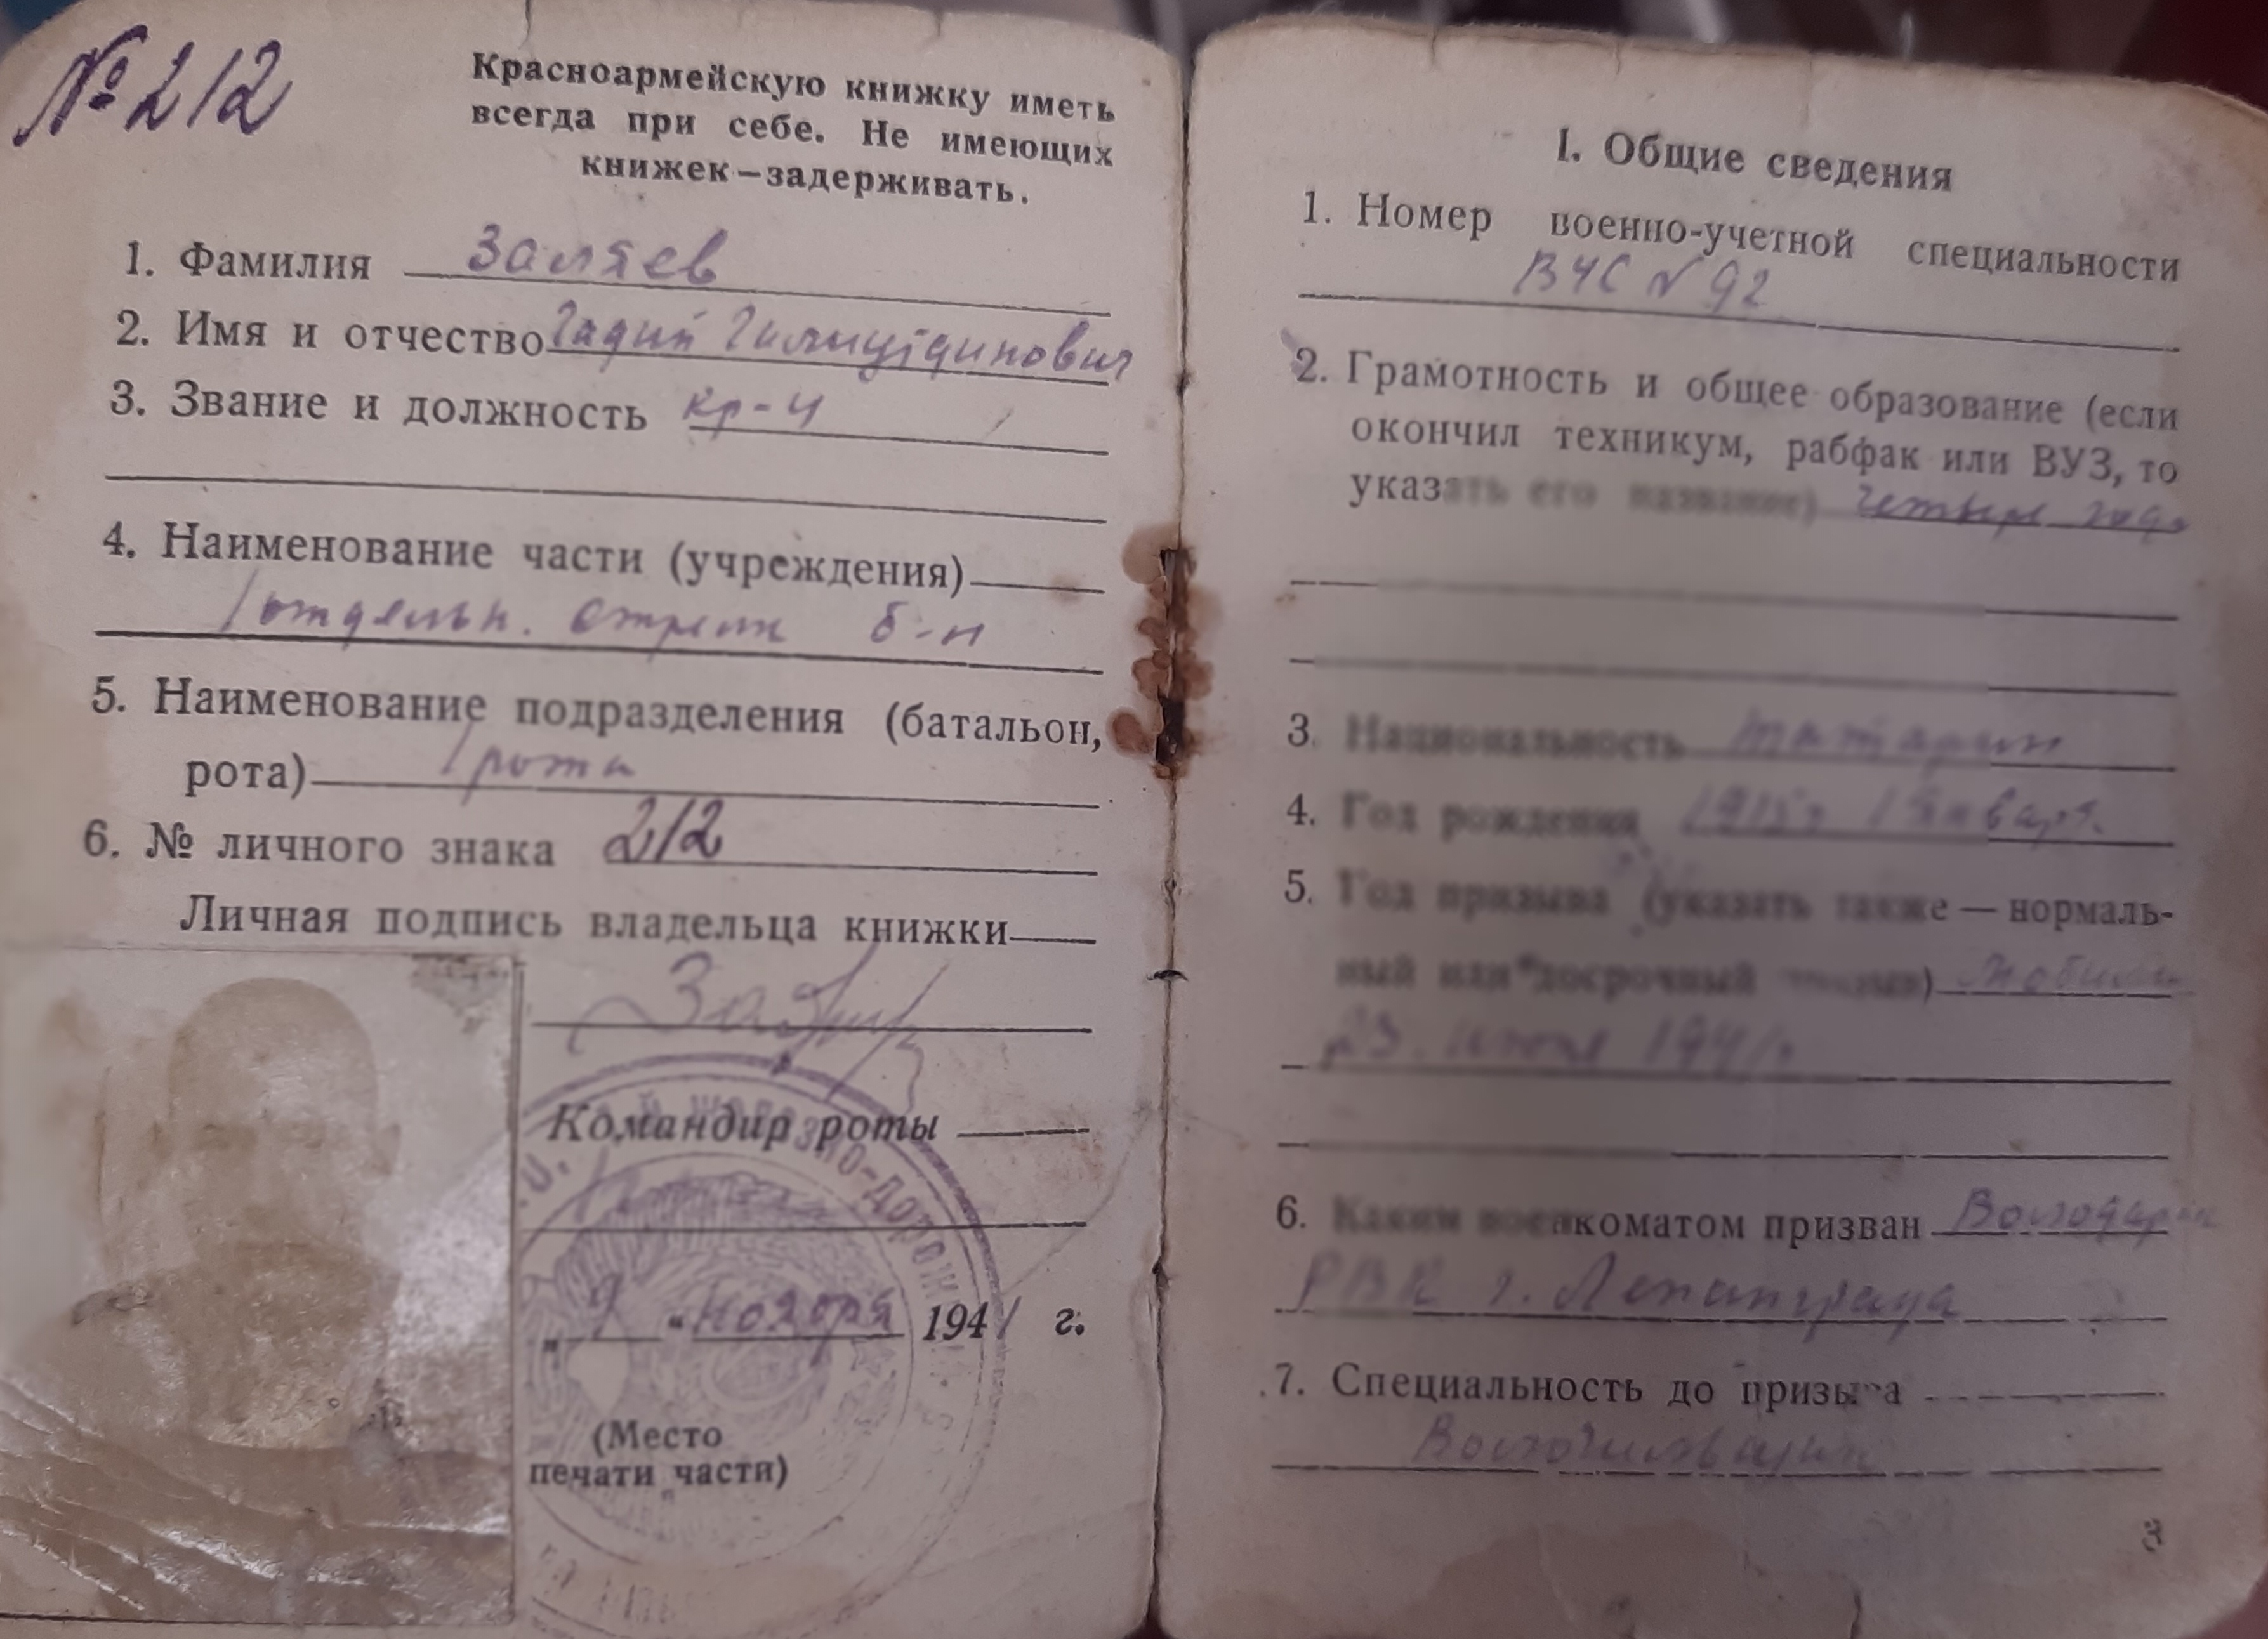 № 212
Красноармейскую книжку иметь
всегда при себе. Не имеющих
книжек—задерживать.
1. Фамилия Заляев
2. Имя и отчество Гадий
3. Звание и должность кр-ц
4. Наименование части (учреждения)
1 отдельн. стрелк б-н
5. Наименование подразделения (батальон,
рота) 1 рота
6. № личного знака 212
Личная подпись владельца книжки
Командир роты
„ 9 “ ноября 1941 г.
(Место
печати части)
I. Общие сведения
1. Номер военно-учетной специальности
ВУС № 92
2. Грамотность и общее образование (если
окончил техникум, рабфак или ВУЗ, то
указать его название) четыре года
3. Национальность татарин
4. Год рождения 1915 г 1 января
5. Год призыва (указать также — нормаль-
ный или досрочный призыв)
23. 1941 г
6. Каким военкоматом призван Володарск
РВК г. Ленинграда
7. Специальность до призыва
3